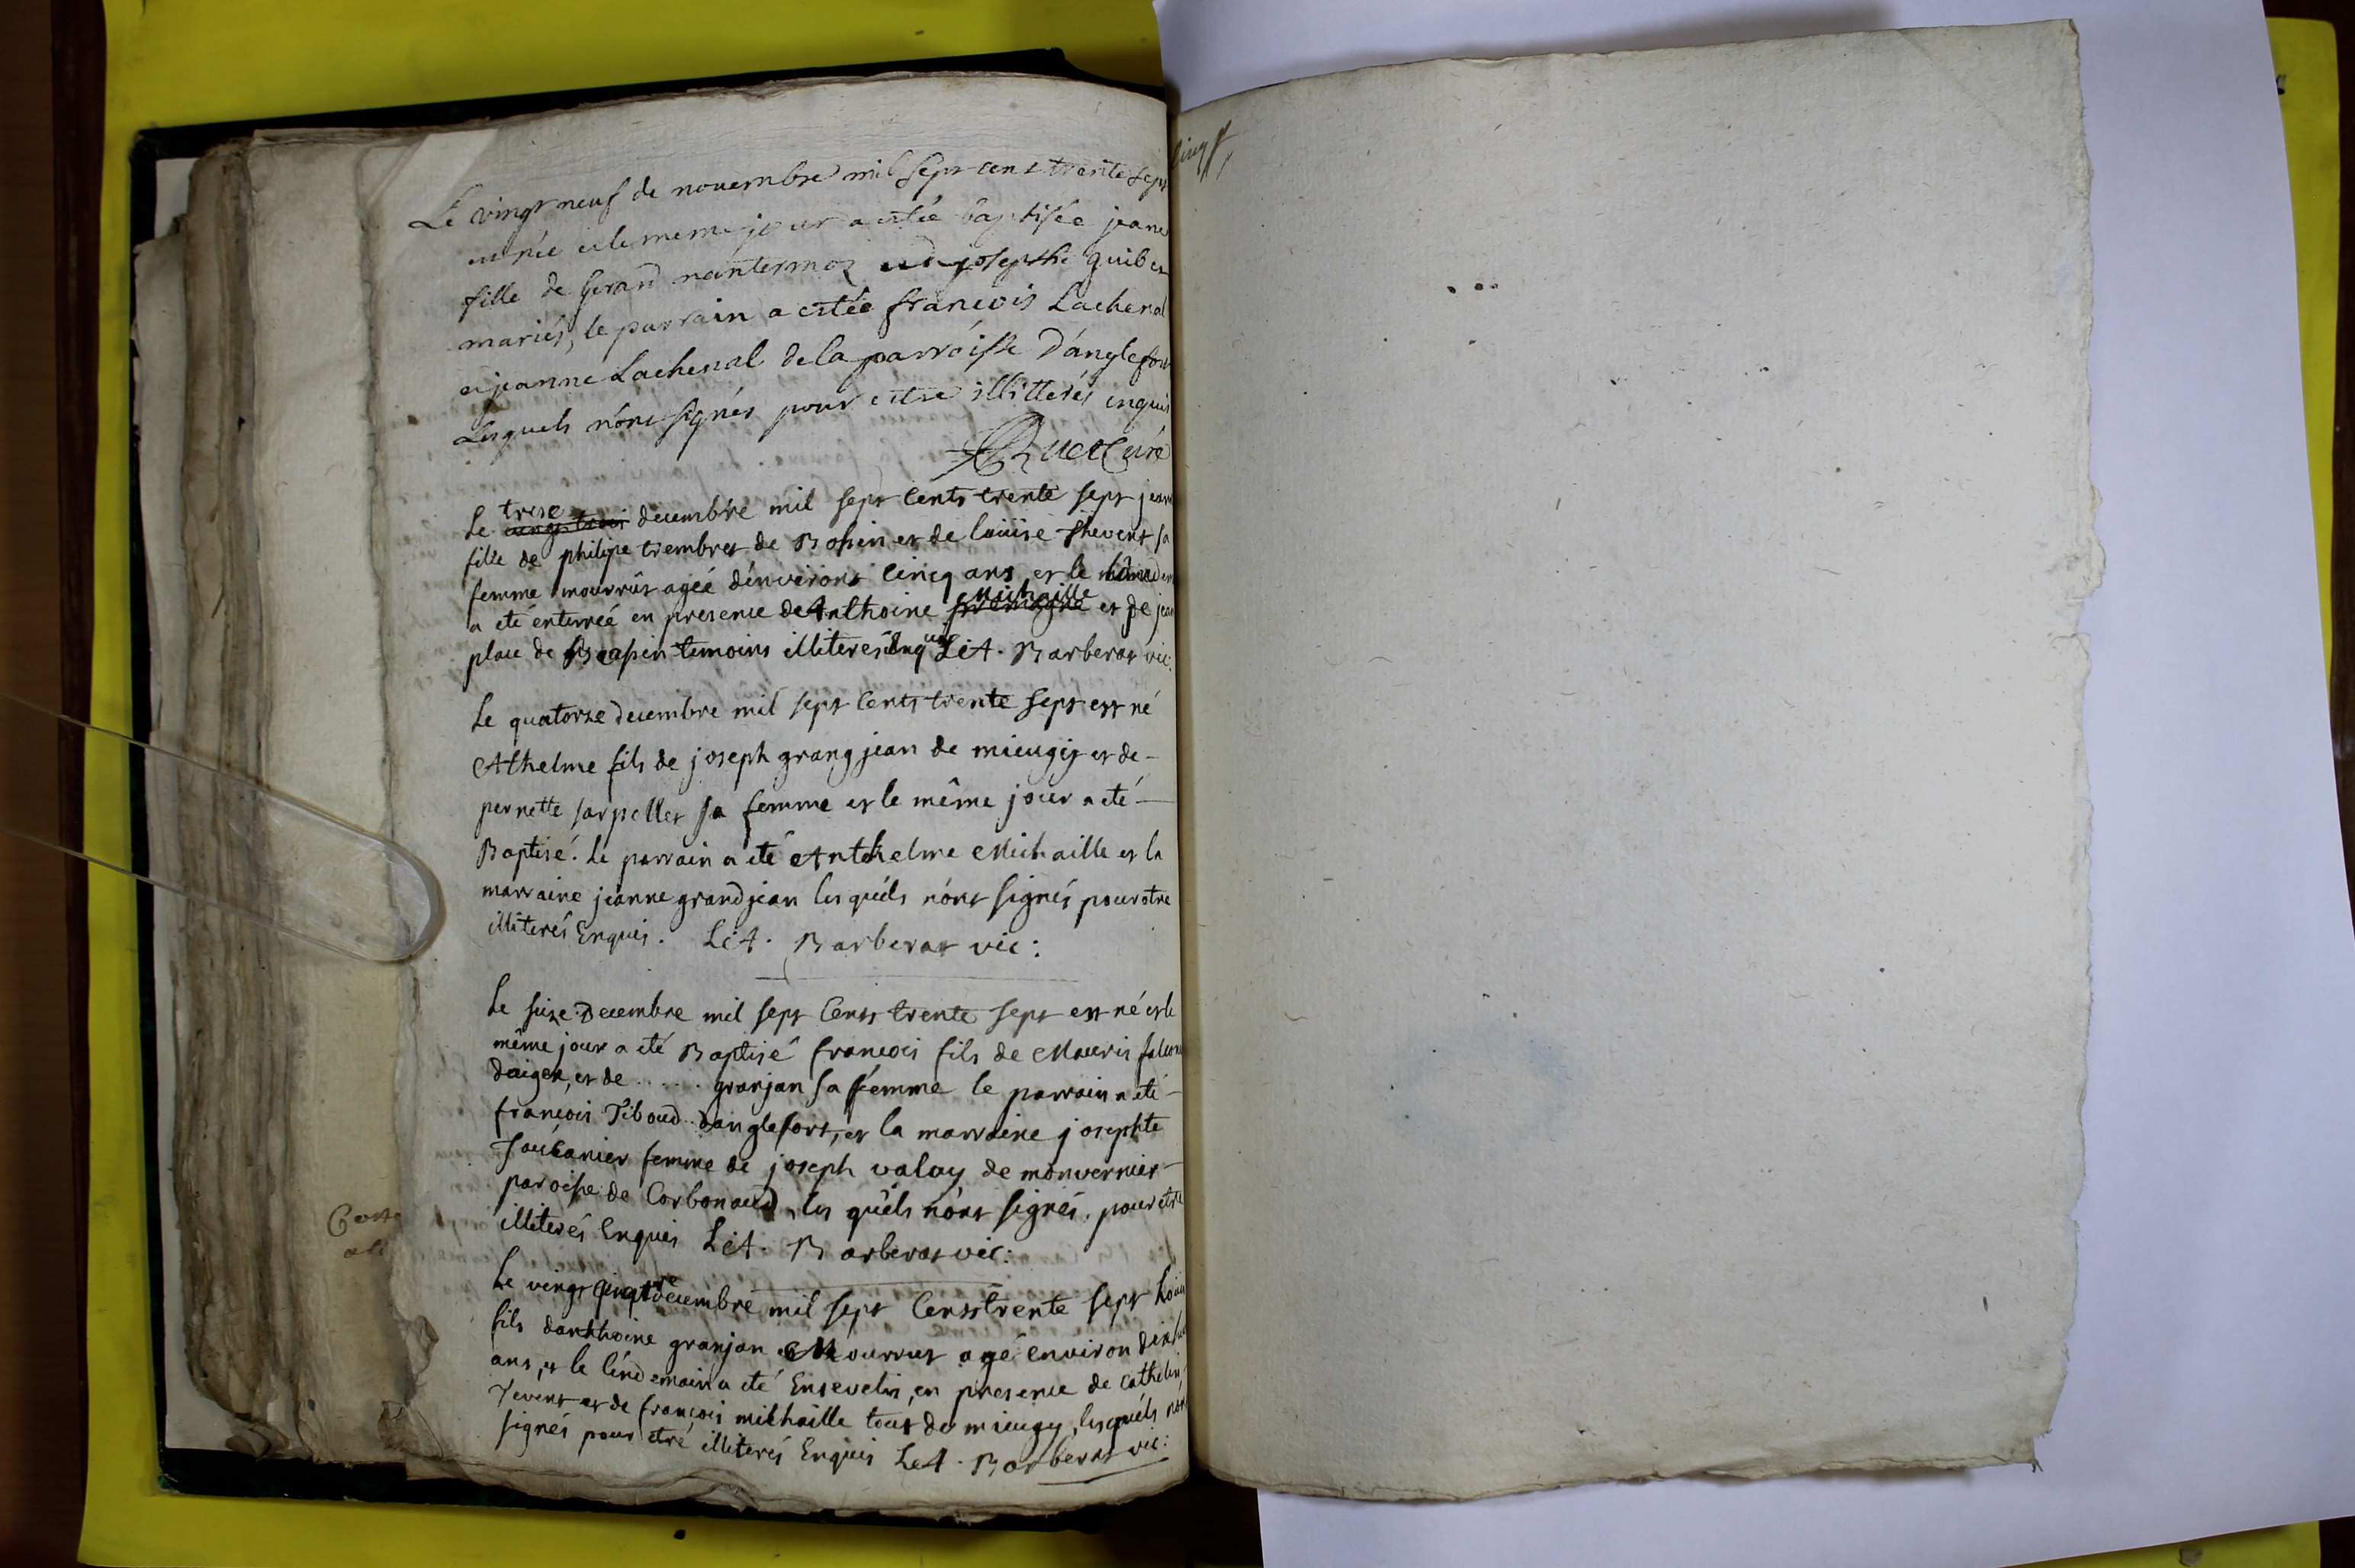 Le vingt neuf de novembre mil sept cent trente sept
est née et le meme jour a estée baptisée jeane
fille de Gerard nantermoz et de josephte guibet
mariés, le parrain a estée francois Lachenal
et jeanne Lachenal de la parroisse d'anglefort
Lesquels n'ont signés pour estre illitterés enquis
Curé
Le trese vingt trois decembre mil sept Cents trente sept jeane
fille de philipe trembret de et de louise thevent sa
femme mourrût ageé d'environt Cincq ans et le
a eté enterreé en presence de Anthoine Michaille et de jean
place de temoins illiteres Enquis Let. Barberat vic:
Le quatorze decembre mil sept Cents trente sept est né
Athelme fils de joseph grangjean de mieugis et de
pernette sarpellet sa femme et le même jour a eté
Baptisé. Le parrain a eté Anthelme Michaille et la
marraine jeanne grandjean les quéls n'ont signés pour etre
illiterés Enquis. Let. Barberat vic:
Le seize Decembre mil sept Cents trente sept est né et le
même jour a eté Baptisé francois fils de Mauris falcon
et de ..... granjan sa femme le parrain a eté
francois Tiboud d'anglefort, et la marraine josephte
femme de joseph valay de monvernier
paroisse de Corbonaud, les quêls n'ont signés pour etre
illiterés Enquis Let. Barberat vic:
Le vingt decembre mil sept Cents trente sept
fils d'anthoine granjan Mourrut agé environ
ans, et le lendemain a eté Ensevelis, en presence de Cathelin
Tevent et de francois mikhaille tout de mieugy, lesquéls n'ont
signés pour etré illiterés Enquis Let. Barberat vic: